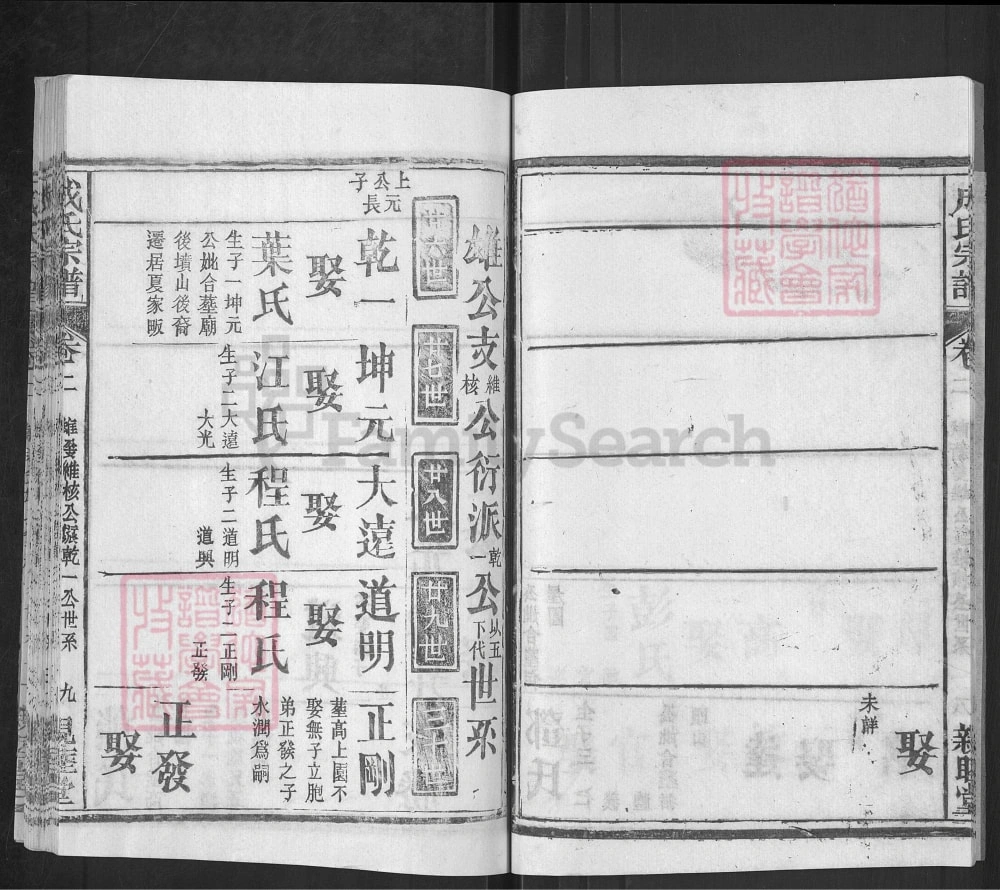 成氏宗譜
卷二
娶
未詳
雄公支維核公衍派乾一公以下玉代世系
廿七世
廿八世
廿九世
三十世
上公子
元長
乾一
娶
葉氏
生子一坤元
公妣合墓廟
後墳山後裔
遷居夏家畈
坤元
娶
江氏
生子二大遠
大光
大遠
娶
程氏
生子二道明
道興
道明
娶
程氏
生子二正剛
正發
正剛
墓高上園不
娶無子立胞
弟正發之子
永潤為嗣
正發
娶
成氏宗譜
卷二
雄發維核公縣乾一公世系
九
FamilySearch